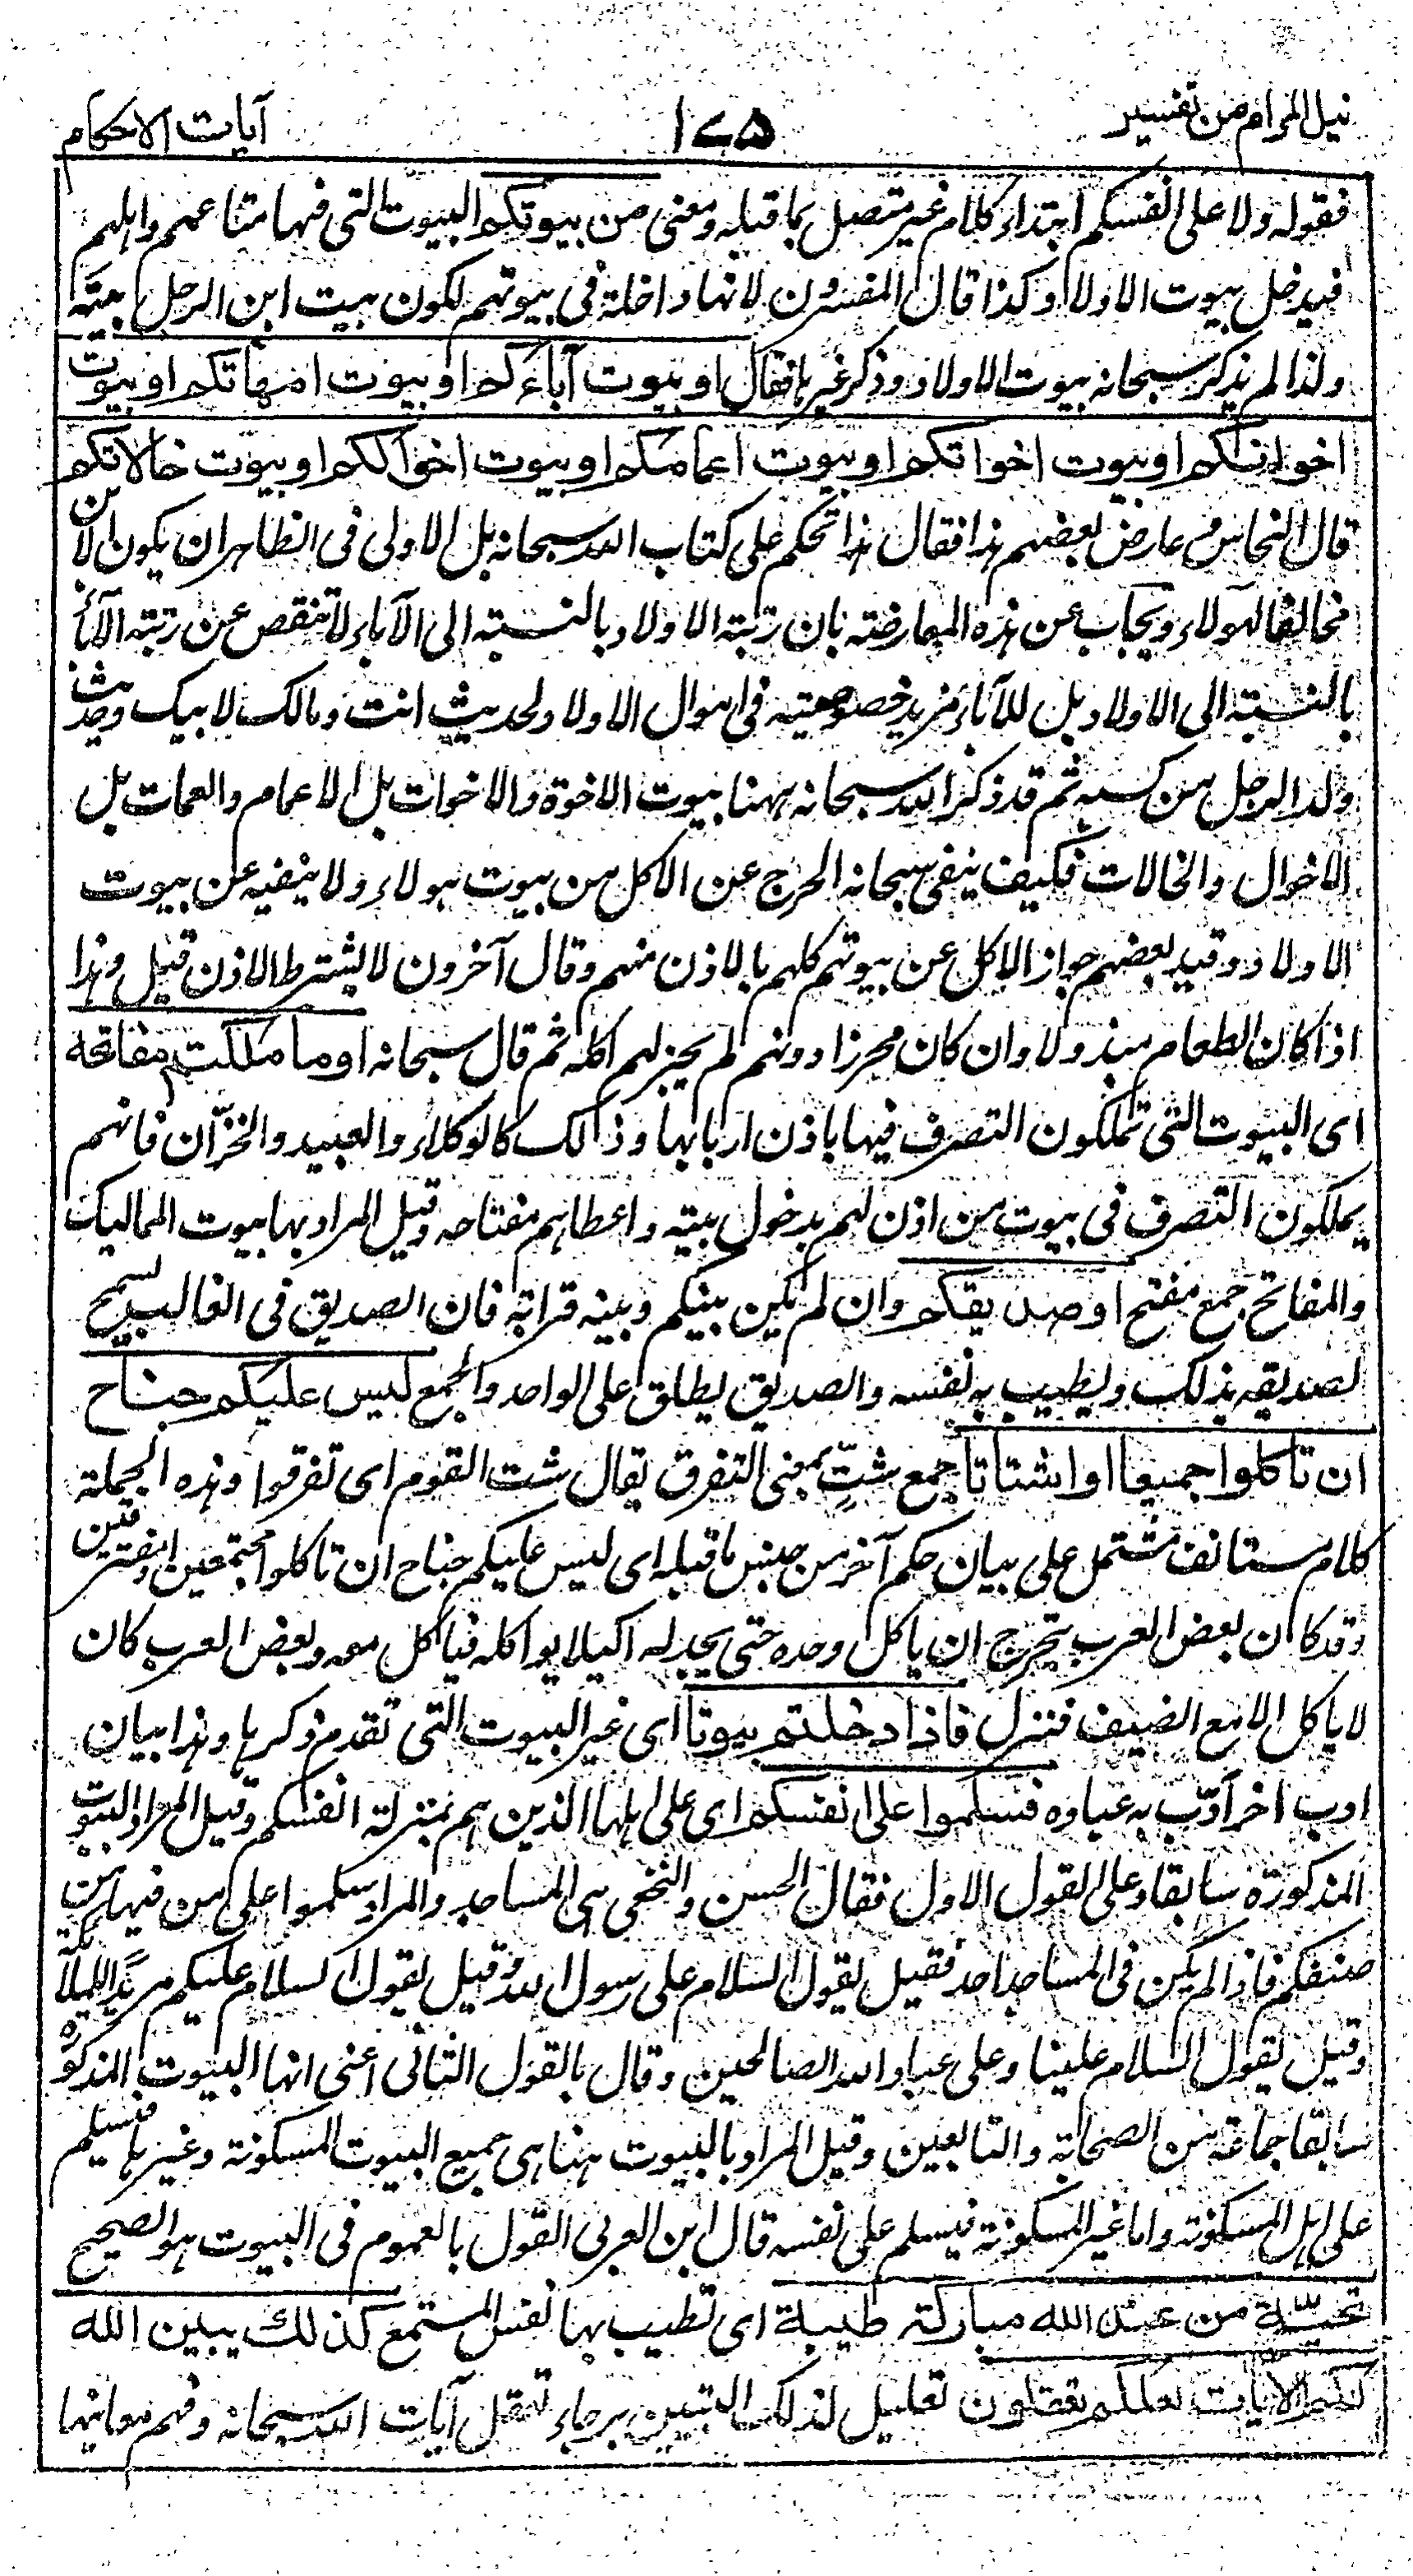 نيل المرام من تفسير ١٧٥ آيات الاحكام
فقوله ولا على انفسكم ابتداء كلام غير متصل بما قبله ومعنى من بيوتكم البيوت التى فيها متاعهم واهلهم
فيدخل بيوت الاولاد كذا قال المفسرون لانها داخلة فى بيوتهم لكون بيت ابن الرجل بيته
ولذا لم يذكر سبحانه بيوت الاولاد وذكر غيرها فقال او بيوت آباءكم او بيوت امهاتكم او بيوت
اخوانكم او بيوت اخواتكم او بيوت اعمامكم او بيوت اخوالكم او بيوت خالاتكم
قال النحاس وعارض بعضهم هذا فقال هذا تحكم على كتاب الله سبحانه بل الاولى فى الظاهر ان يكون الابن
مخالفا لهؤلاء ويجاب عن هذه المعارضة بان رتبة الاولاد بالنسبة الى الآباء لا تنقص عن رتبة الآباء
بالنسبة الى الاولاد بل للآباء مزيد خصوصية فى اموال الاولاد لحديث انت ومالك لابيك وحديث
ولد الرجل من كسبه ثم قد ذكر الله سبحانه ههنا بيوت الاخوة والاخوات بل الاعمام والعمات بل
الاخوال والخالات فكيف ينفى سبحانه الحرج عن الاكل من بيوت هؤلاء ولا ينفيه عن بيوت
الاولاد وقيد بعضهم جواز الاكل عن بيوتهم كلهم بالاذن منهم وقال آخرون لا يشترط الاذن قيل وهذا
اذا كان الطعام مبذولا وان كان محرزا دونهم لم يجز لهم اكله ثم قال سبحانه او ما ملكتم مفاتحه
اى البيوت التى تملكون التصرف فيها باذن اربابها وذلك كالوكلاء والعبيد والخزّان فانهم
يملكون التصرف فى بيوت من اذن لهم بدخول بيته واعطاهم مفتاحه وقيل المراد بها بيوت المماليك
والمفاتح جمع مفتح او صديقكم وان لم يكن بينكم وبينه قرابة فان الصديق فى الغالب يسمح
لصديقه بذلك ويطيب به نفسه والصديق يطلق على الواحد والجمع ليس عليكم جناح
ان تاكلوا جميعا او اشتاتا جمع شتّ بمعنى التفرق يقال شت القوم اى تفرقوا وهذه الجملة
كلام مستانف مشتمل على بيان حكم آخر من جنس ما قبله اى ليس عليكم جناح ان تاكلوا مجتمعين او مفترقين
وقد كان بعض العرب يتحرج ان ياكل وحده حتى يجد له اكيلا يواكله فياكل معه وبعض العرب كان
لا ياكل الا مع الضيف فنزل فاذا دخلتم بيوتا اى غير البيوت التى تقدم ذكرها وهذا بيان
ادب اخر ادّب به عباده فسلموا على انفسكم اى على اهلها الذين هم بمنزلة انفسكم وقيل المراد البيوت
المذكورة سابقا وعلى القول الاول فقال الحسن والنخعى هى المساجد والمراد سلموا على من فيها من
صنفكم فاذا لم يكن فى المساجد احد فقيل يقول السلام على رسول الله وقيل يقول السلام عليكم مريدا للملائكة
وقيل يقول السلام علينا وعلى عباد الله الصالحين وقال بالقول الثانى اعنى انها البيوت المذكورة
سابقا جماعة من الصحابة والتابعين وقيل المراد بالبيوت هنا هى جميع البيوت المسكونة وغيرها فيسلم
على اهل المسكونة واما غير المسكونة فيسلم على نفسه قال ابن العربى القول بالعموم فى البيوت هو الصحيح
تحيّة من عند الله مباركة طيبة اى تطيب بها نفس المستمع كذلك يبين الله
لكم الآيات لعلكم تعقلون تعليل لذلك التبيين برجاء تعقل آيات الله سبحانه وفهم معانيها